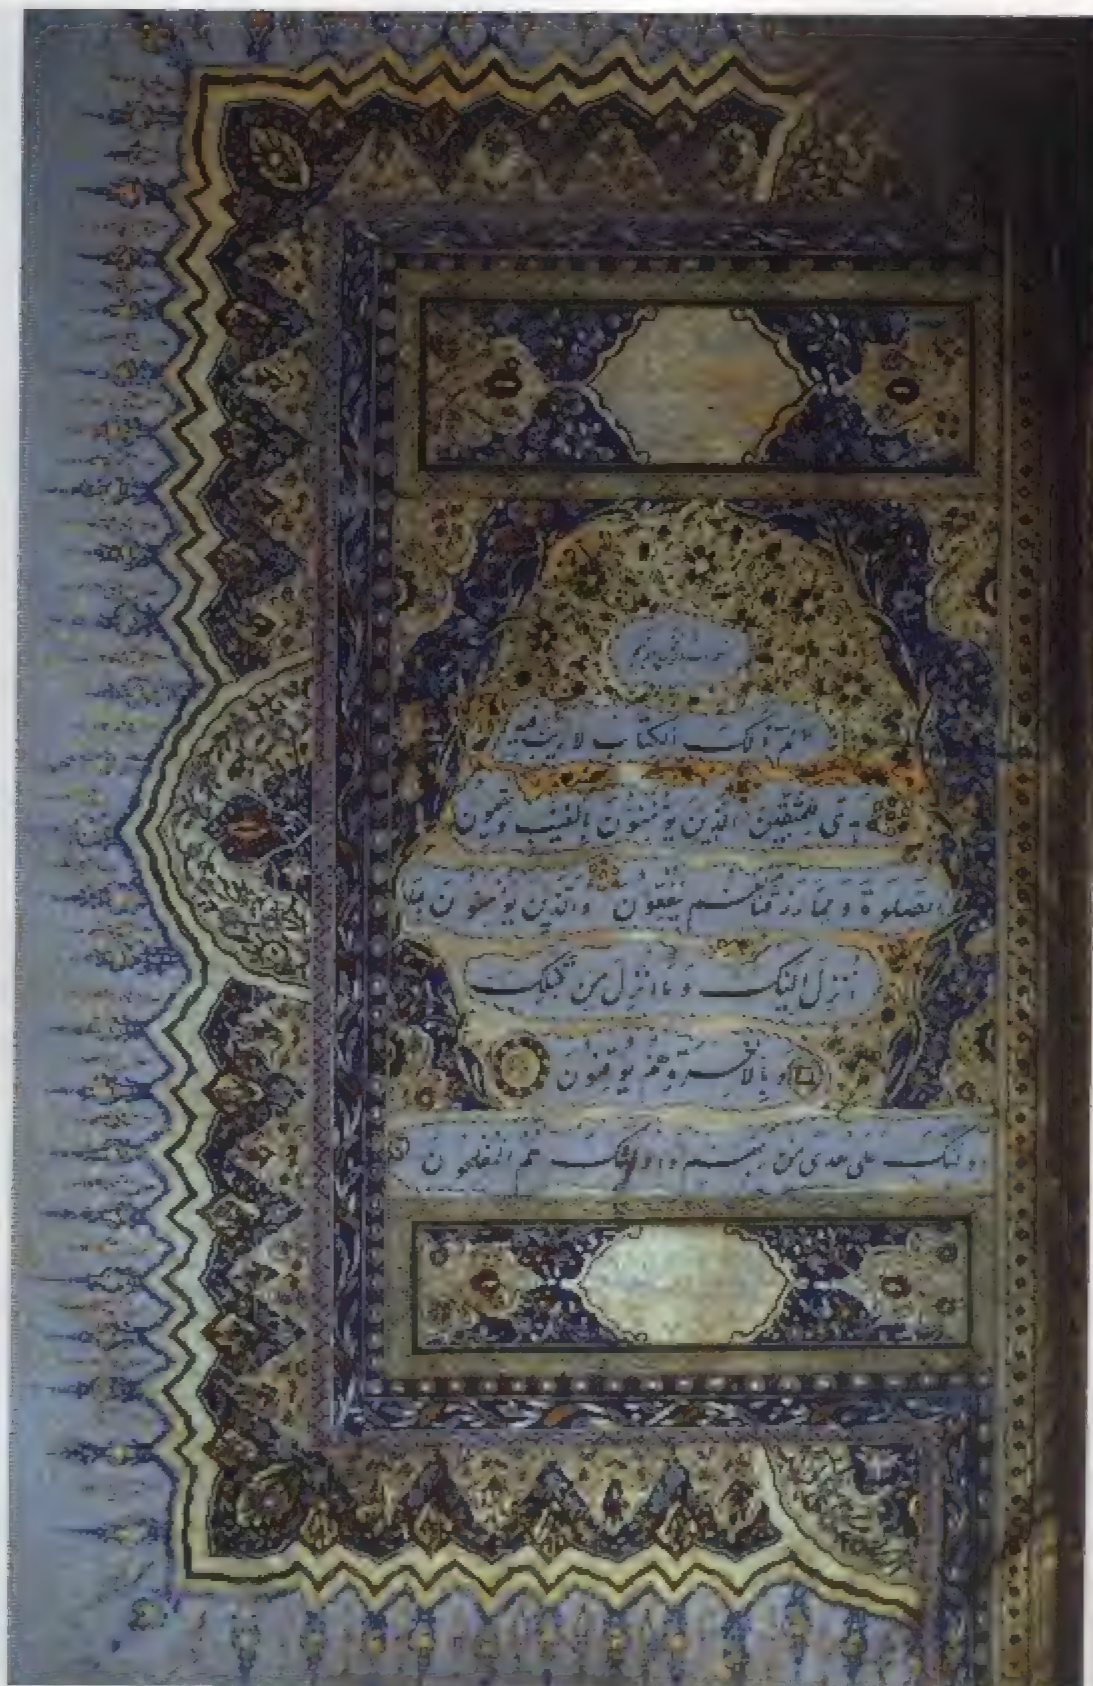 الم ذلك الكتاب لا ريب فيه
هدى للمتقين الذين يؤمنون بالغيب ويقيمون
الصلوة ومما رزقناهم ينفقون والذين يؤمنون بما
انزل اليك وما انزل من قبلك
وبالاخرة هم يوقنون
اولئك على هدى من ربهم واولئك هم المفلحون